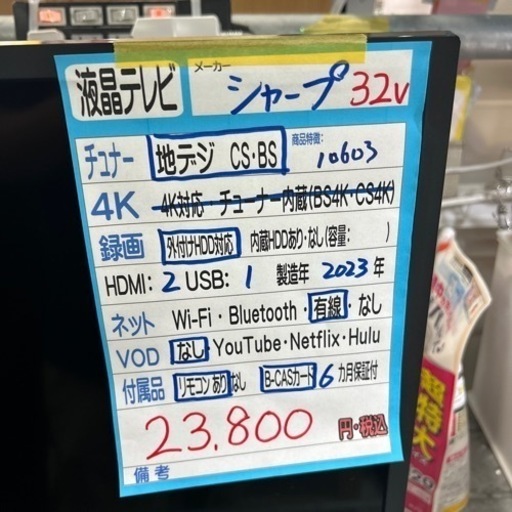 液晶テレビ
メーカー シャープ 32v
チュナー 地デジ CS・BS 商品特徴: 10603
4K 4K対応・チューナー内蔵(BS4K・CS4K)
録画 外付けHDD対応 内蔵HDDあり・なし(容量: )
HDMI: 2 USB: 1 製造年 2023年
ネット Wi-Fi・Bluetooth・有線・なし
VOD なし YouTube・Netflix・Hulu
付属品 リモコンあり なし B-CASカード 6カ月保証付
23.800 円・税込
備考
超特大